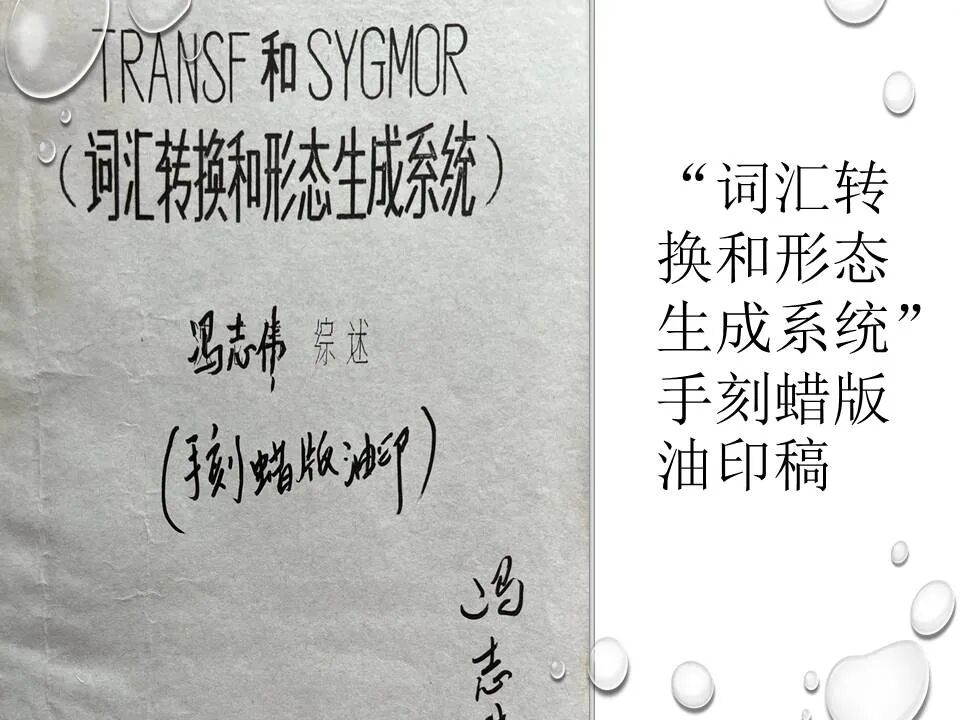 TRANSF 和 SYGMOR
（词汇转换和形态生成系统）
冯志伟 综述
（手刻蜡版油印）
冯
志
“词汇转
换和形态
生成系统”
手刻蜡版
油印稿